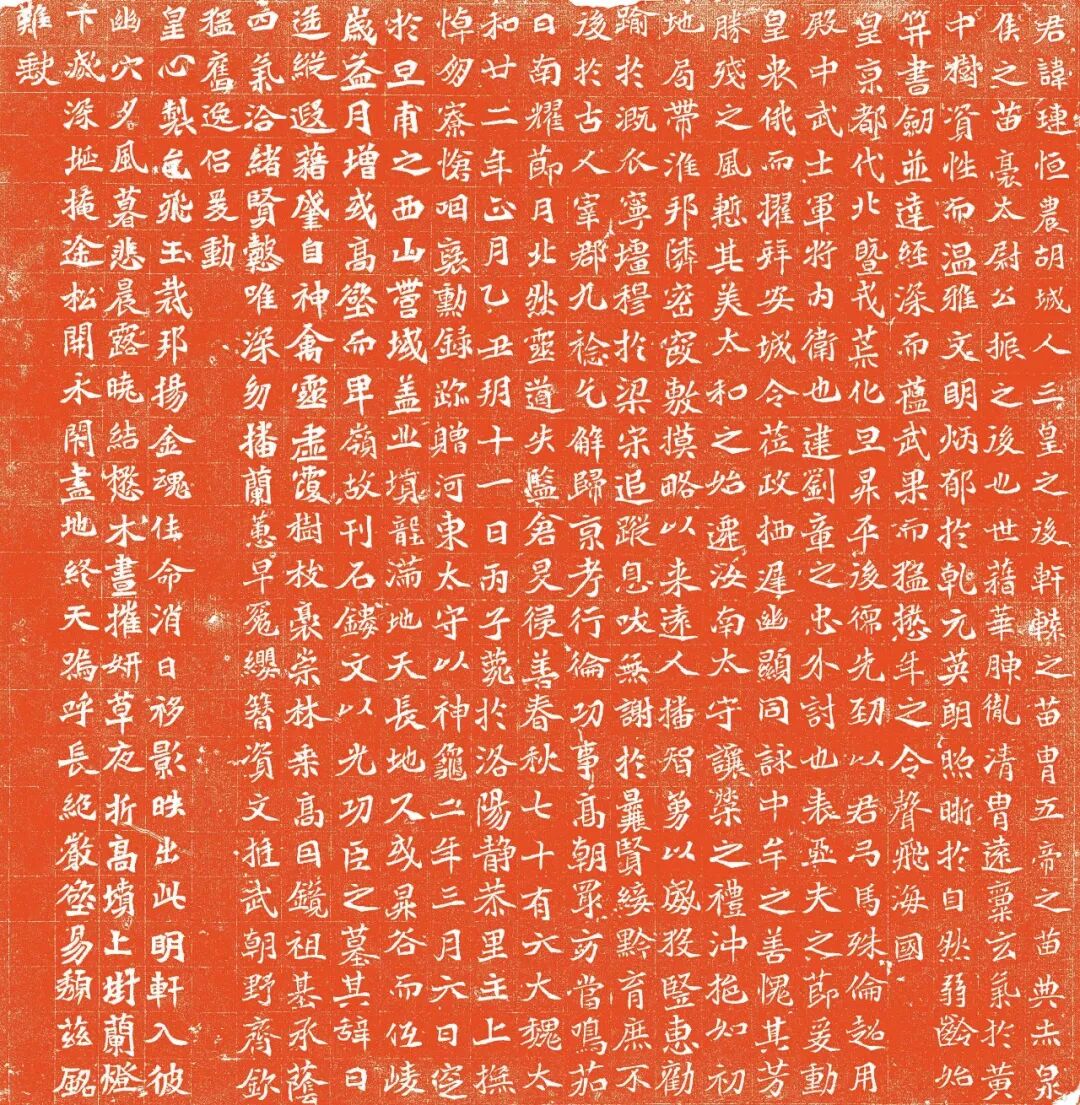 君諱璉恒農胡城人三皇之後軒轅之苗胄五帝之苗典赤泉
侯之苗裔太尉公振之後也世藉華胂胤清胄遠稟玄氣於黃
中樹資性而溫雅文明炳郁於乹元英朗照晰於自然弱齡始
笄書劒並達經深而蘊武果而猛懋年之令聲飛海國
皇京都代北暨戎荒化旦昇平後徳先劲以君弓馬殊倫起用
殿中武士軍將內衛也逮劉童之忠外討也表亞夫之節爰動
皇衷俄而擢拜安城令莅政栖遲幽顯同詠中牟之善愧其芳
勝殘之風慙其美太和之始遷汝南太守讓榮之禮沖挹如初
地局帶淮邦隣密寇敷摸略以来遠人播智勇以威豎惠勸
踰於溉瓜寧壃穆於梁宋追蹤息吠無謝於曩賢綏黔育庶不
後於古人宰郡九稔乞解歸京考行倫功事高朝眾方當鳴茄
日南耀節月北然靈道失鑒倉旻善春秋七十有六大魏太
和廿二年正月乙丑玥十一日丙子薨於洛陽静恭里主上撫
悼匆寮愴咽襃勳録跡贈河東太守以神龜二年三月六日窆
於旦甫之西山營域盖业填龍滿地天長地久或昇谷而伍崚
歲益月增或高壑而早嶺故刊石鏤文以光功臣之墓其辞曰
遥縱遐藉肇自神禽靈虛霞樹枝裊崇林乗高日鏡祖基承蔭
四氣洽緒賢懿唯深匆播蘭蕙早冤纓簪資文推武朝野齊欽
猛奮逸侣爰動
皇心製龟飛玉裁邦揚金魂佳命消日移影昳出此明軒入彼
幽穴夕風暮悲晨露曉結懋木晝摧妍草夜折高墳上崩蘭燈
下滅深埏掩塗松開永閇盡地終天嗚呼長絕巖壑易頽兹銘
難歇